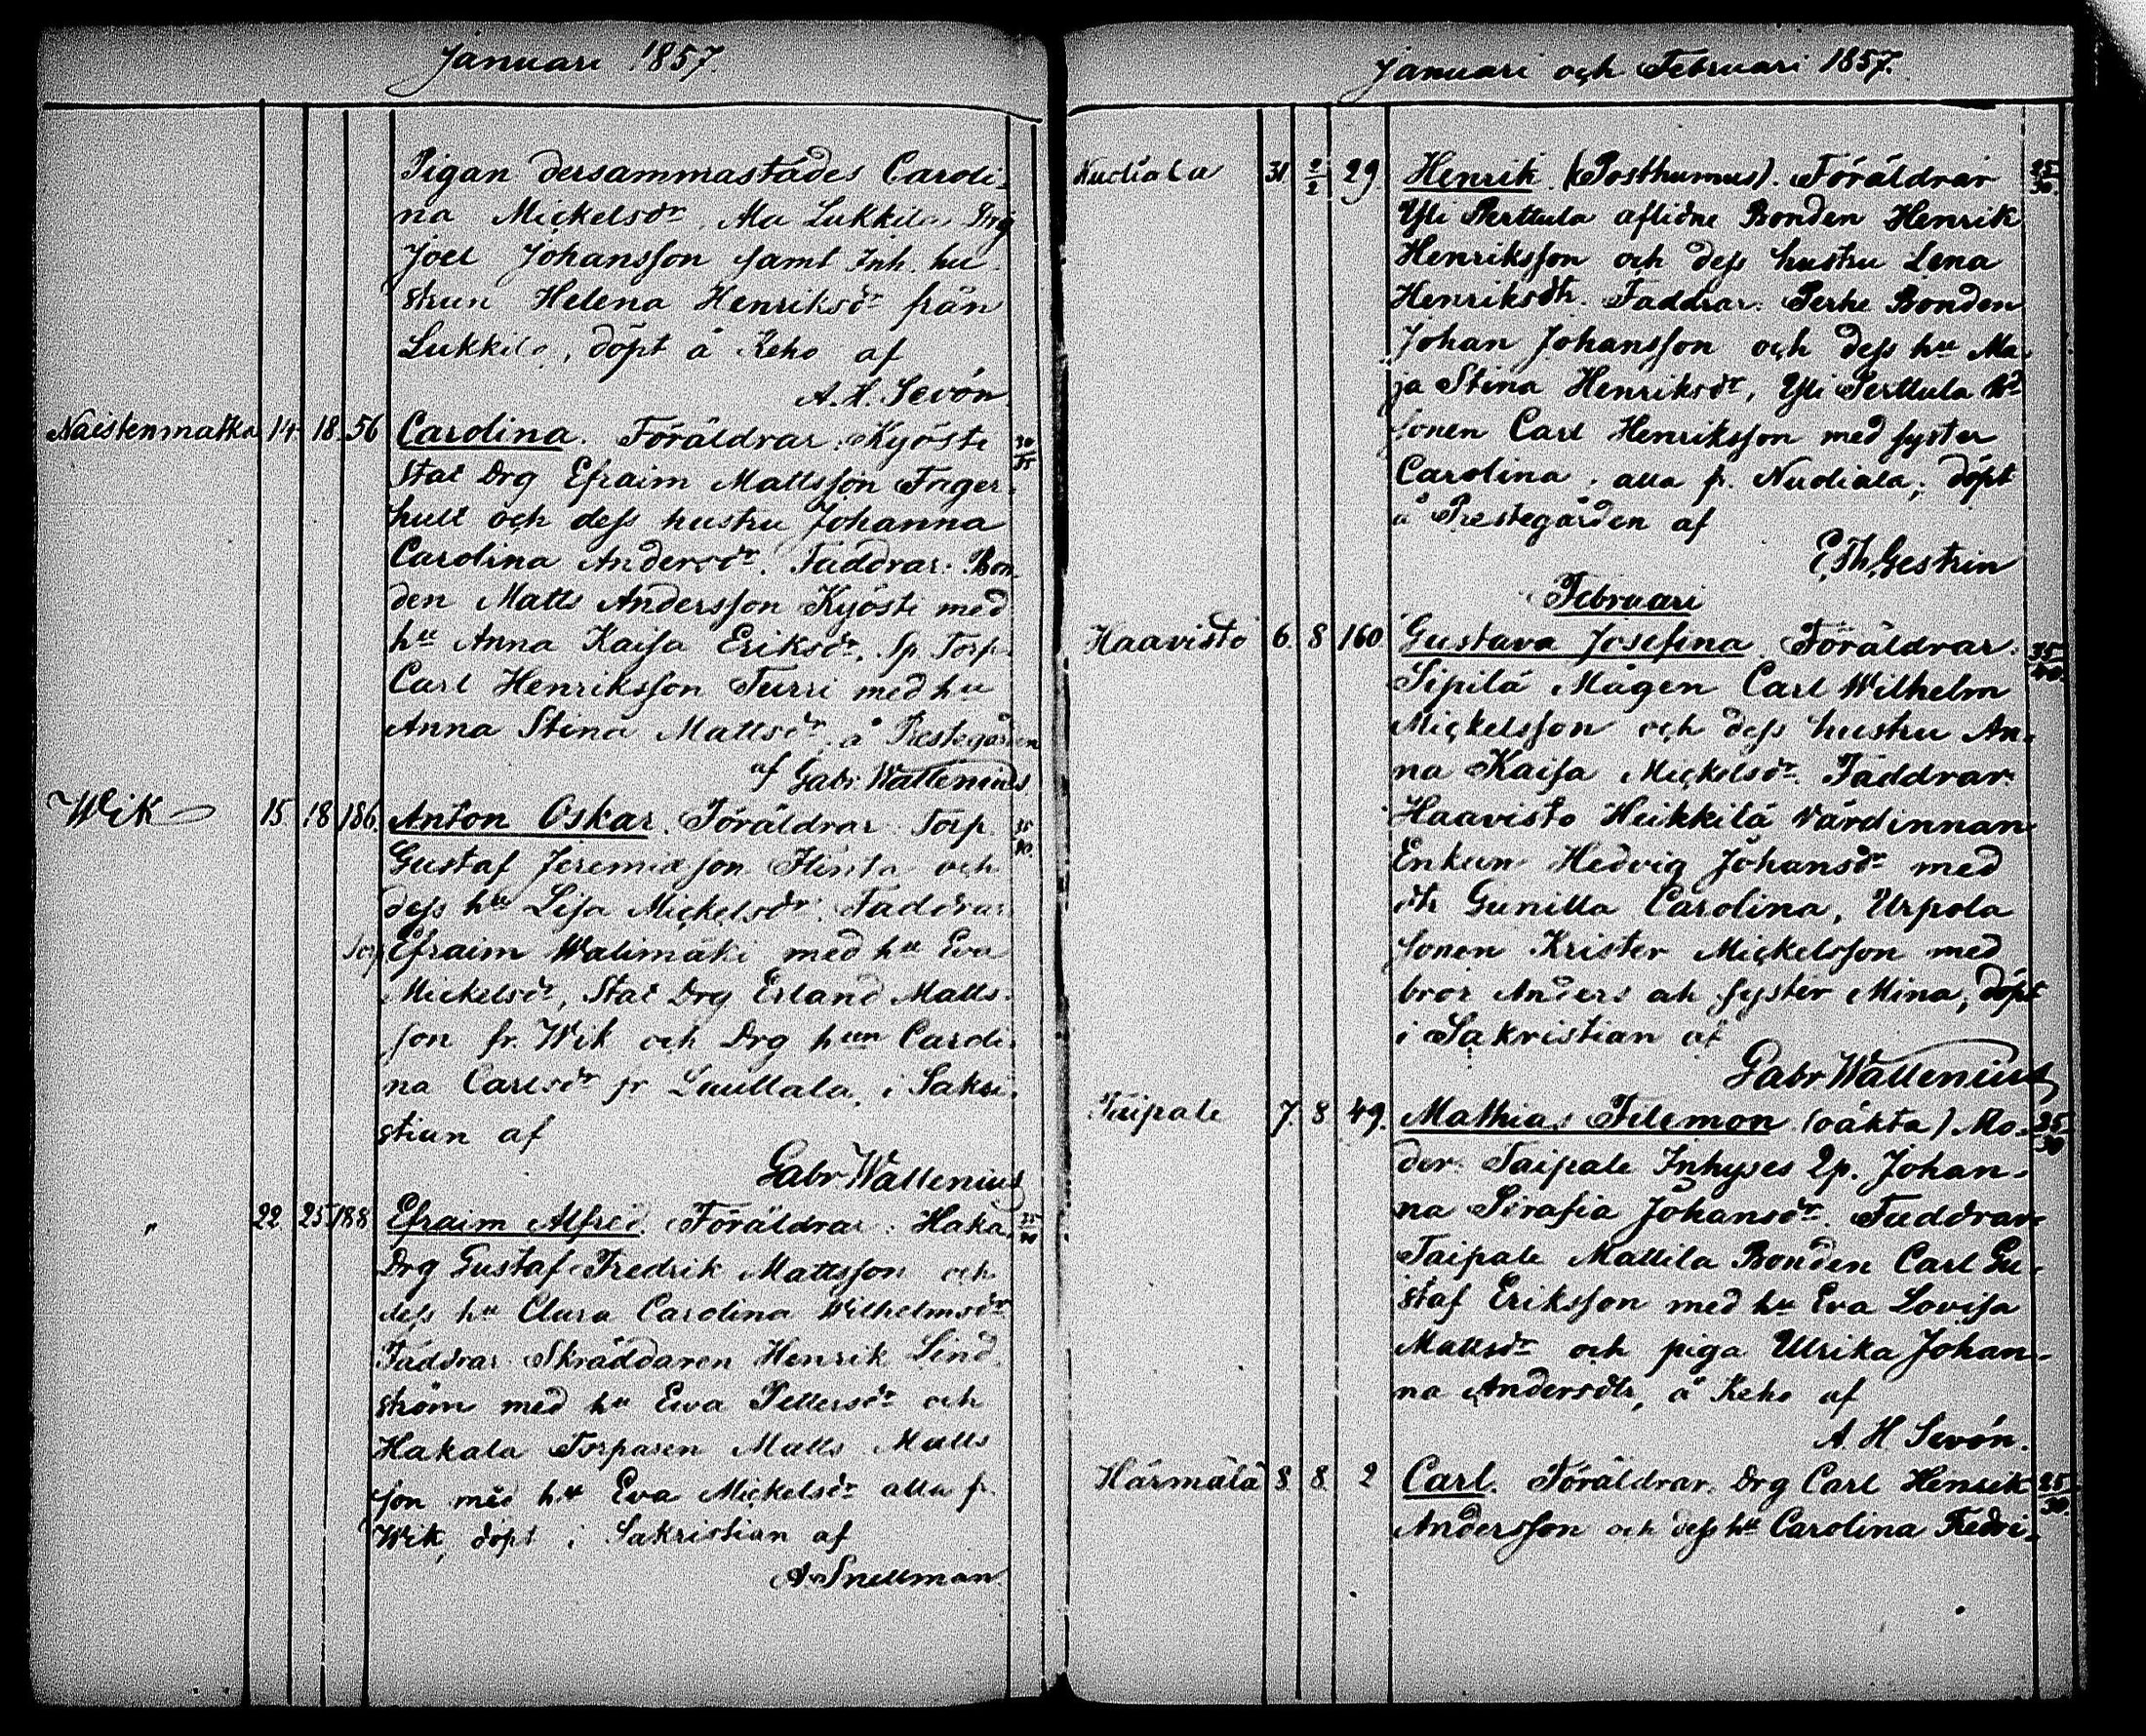 Januari 1857.
Pigan dersammastädes Caroli-
na Mickelsdr, Ala Lukkila Drg
Joel Johansson samt Inh. hu-
strun Helena Henriksdr från
Lukkila, döpt å Keho af
A. H. Sevón.
Naistenmatka 14. 18. 56 Carolina. Föräldrar: Kyösti 30/35
Stat Drg Efraim Mattsson Fager-
hult och dess hustru Johanna
Carolina Andersdr. Faddrar. Bon-
den Matts Andersson Kyösti med
hu Anna Kaisa Eriksdr, Sp. Torp.
Carl Henriksson Turri med hu
Anna Stina Mattsdr å Prestegården
af Gabr. Wallenius
Wik 15 18 186. Anton Oskar. Föräldrar Torp.
Gustaf Jeremiasson och
dess hu Lisa Mickelsdr. Faddrar
Torp Efraim Walimäki med hu Eva
Mickelsdr, Stat Drg Erland Matts-
son fr. Wik och Drg hun Caroli-
na Carlsdr fr Luullala, i Sakri-
stian af
Gabr Wallenius
" 22. 25 188 Efraim Alfred. Föräldrar: Haka
Drg Gustaf Fredrik Mattsson och
dess hu Clara Carolina Wilhelmsdr
Faddrar. Skräddaren Henrik Lind-
ström med hu Ewa Pettersdr och
Hakala Torparen Matts Matts
son med hu Eva Mickelsdr alla fr.
Wik, döpt i Sakristian af
A Snellman
Januari och Februari 1857.
Nudiala 31 2/2 29. Henrik. (Posthumus). Föräldrar 25/30.
Yli Perttula aflidne Bonden Henrik
Henriksson och dess hustru Lena
Henriksdtr. Faddrar. Perhe Bonden
Johan Johansson och dess hu Ma-
ja Stina Henriksdr, Yli Perttula Bd
sonen Carl Henriksson med syster
Carolina, alla fr. Nudiala; döpt
å Prestegården af
E. Th. Gestrin
Februari
Haavisto 6. 8 160. Gustava Josefina. Föräldrar. 35/40.
Sipilä Mågen Carl Wilhelm
Mickelsson och dess hustru An-
na Kaisa Mickelsdr. Faddrar.
Haavisto Heikkilä Värdinnan
Enkan Hedvig Johansdr med
dtr Gunilla Carolina, Urpola
sonen Krister Mickelsson med
bror Anders och syster Mina, döpt
i Sakristian af
Gabr Wallenius
Taipale 7. 8 49. Mathias Filemon (oäkta) Mo- 25/30
der. Taipale Inhyses Qp. Johan-
na Serafia Johansdr. Faddrar
Taipale Mattila Bonden Carl Gu-
staf Eriksson med hu Eva Lovisa
Mattsdr och piga Ulrika Johan-
na Andersdtr, å Keho af
A. H Sevón.
Härmälä 8. 8. 2 Carl. Föräldrar. Drg Carl Henrik 25/30.
Andersson och dess hu Carolina Fredri-